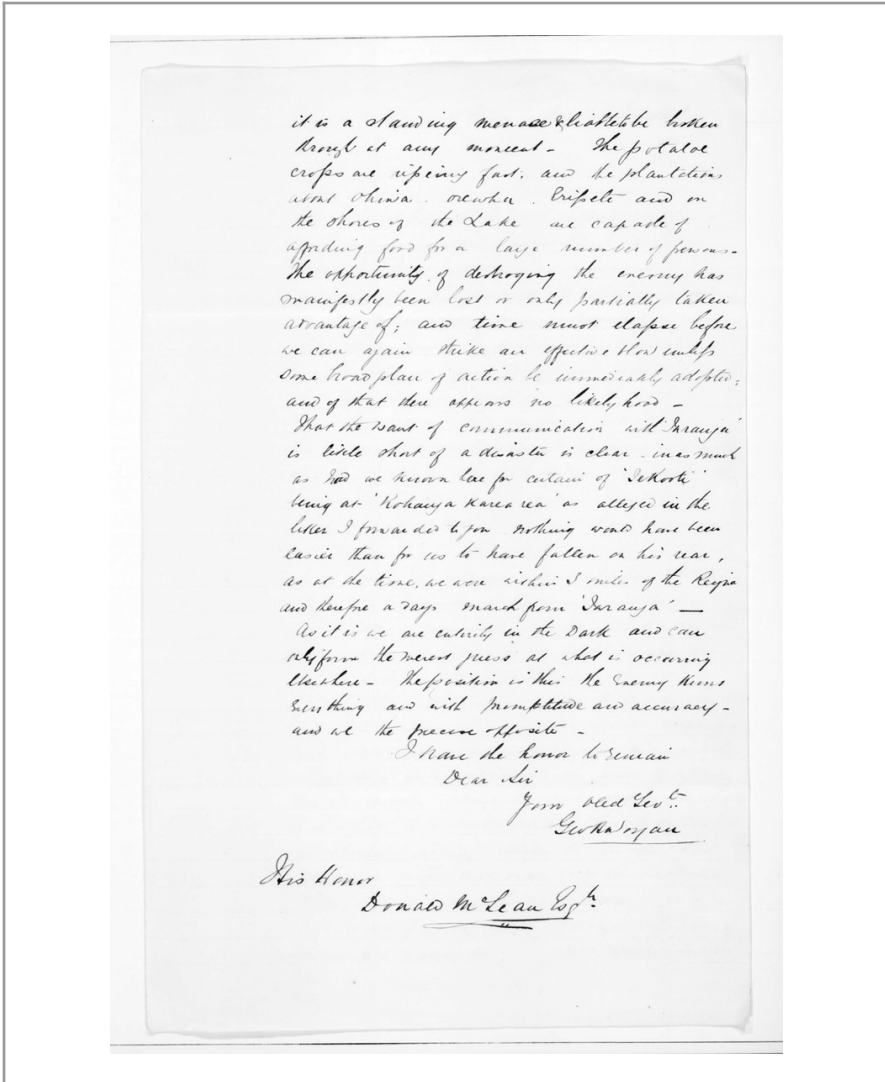 it is a standing menace & liable to be broken
through at any moment - The potatoe
crops are ripening fast, and the plantations
about Ohiwa. Orewha. Eripeti and on
the shores of the Lake are capable of
affording food for a large number of persons -
The opportunity of destroying the enemy has
manifestly been lost or only partially taken
advantage of; and time must elapse before
we can again strike an effective blow unless
some broad plan of action be immediately adopted;
and of that there appears no likelyhood -
That the want of communication with 'Tauranga'
is little short of a disaster is clear - in as much
as had we known here for certain of 'Te Kooti'
being at 'Kohanga Karearea' as alleged in the
letter I forwarded to you nothing would have been
easier than for us to have fallen on his rear,
as at the time, we were within 3 miles of the
and therefore a days march from 'Tauranga' —
As it is we are entirely in the Dark and can
only form the merest guess at what is occurring
elsewhere - The position is this the Enemy knows
Everything and with promptitude and accuracy -
and we the precise opposite -
I have the honor to remain
Dear Sir
Your obed Servt.
Geo Worgan
His Honor
Donald McLean Esqr.